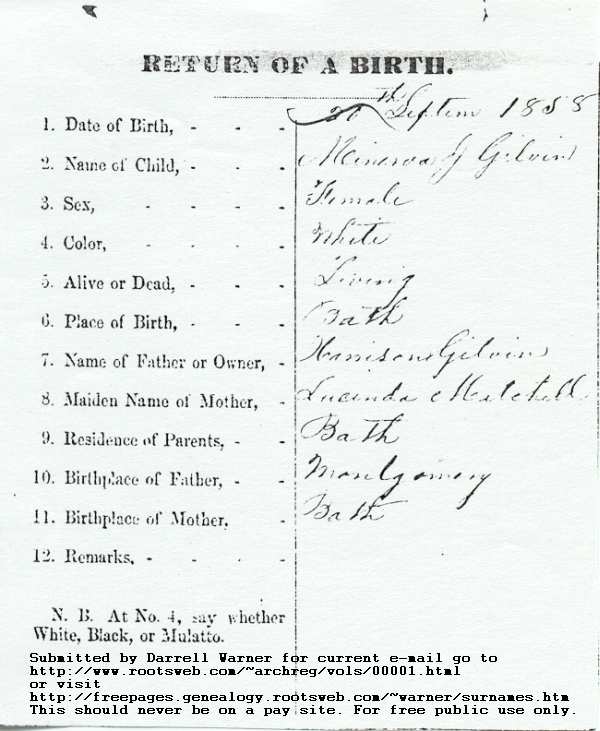 RETURN OF A BIRTH.
1. Date of Birth, - - - 20th Septem 1858
2. Name of Child, - - - Minerva J Gilvin
3. Sex, - - - - Female
4. Color, - - - - White
5. Alive or Dead, - - - Living
6. Place of Birth, - - - Bath
7. Name of Father or Owner, - Harrison Gilvin
8. Maiden Name of Mother, - Lucinda Mitchell
9. Residence of Parents, - - Bath
10. Birthplace of Father, - - Montgomery
11. Birthplace of Mother, - Bath
12. Remarks, - - - -
N. B. At No. 4, say whether
White, Black, or Mulatto.
Submitted by Darrell Warner for current e-mail go to
http://www.rootsweb.com/~archreg/vols/00001.html
or visit
http://freepages.genealogy.rootsweb.com/~warner/surnames.htm
This should never be on a pay site. For free public use only.